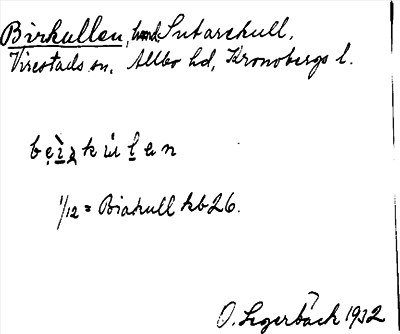 Birkullen, hmd. Sutareskull,
Virestads sn, Allbo hd, Kronobergs l.
be̤ìrkùlen
1/12 = Biakull kb 26.
O. Segerbäck 1932